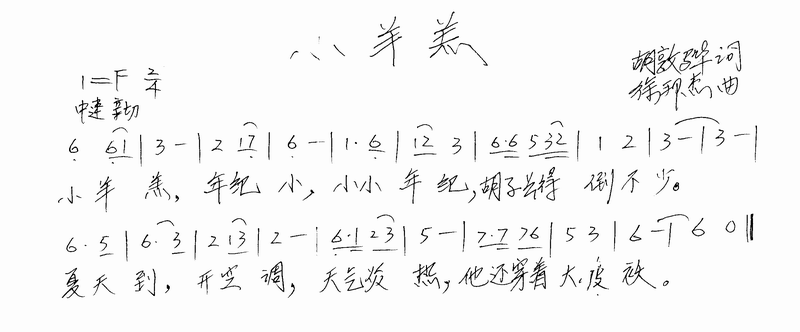 小羊羔
1=F 2/4
胡敦骅词
中速 亲切
徐邦杰曲
6 61 | 3 - | 2 17 | 6 - | 1· 6 | 12 3 | 6·6 532 | 1 2 | 3 - | 3 - |
小羊羔，年纪小，小小年纪，胡子长得倒不少。
6·5 | 6·3 | 2 13 | 2 - | 6·1 23 | 5 - | 7·7 76 | 5 3 | 6 - | 6 0 ‖
夏天到，开空调，天气炎热，他还穿着大皮袄。